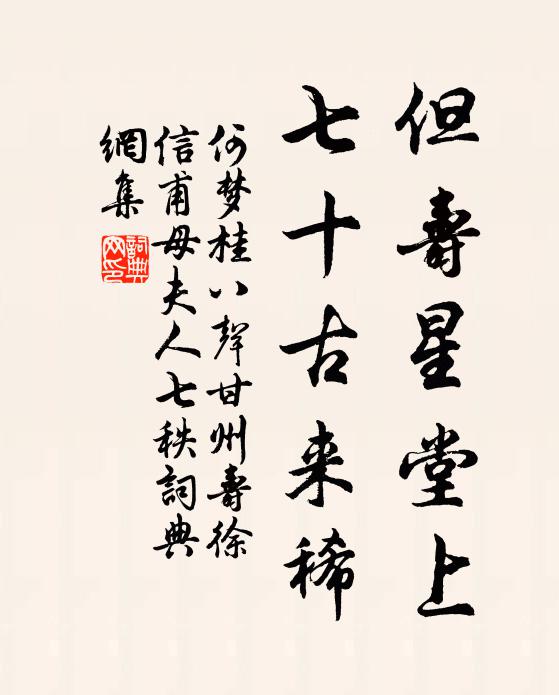 但壽星堂上
七十古来稀
何梦桂八聲甘州壽徐
信甫母夫人七秩詞典
網集
詞典
网印